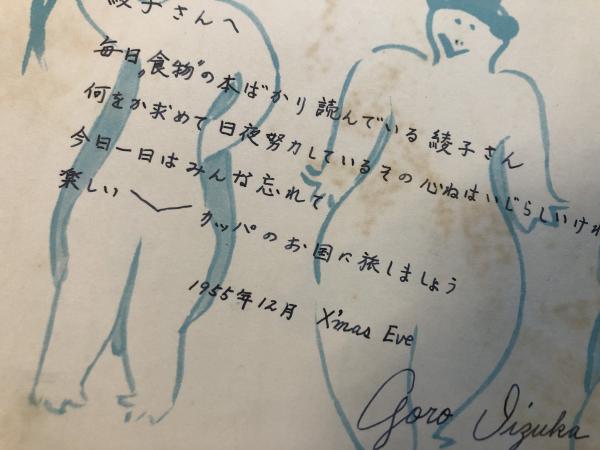 綾子さんへ
毎日"食物"の本ばかり読んでいる綾子さん
何をか求めて日夜努力しているその心ねはいじらしいけれ
今日一日はみんな忘れて
楽しい〱カッパのお国に旅しましょう
1955年12月 X'mas Eve
Goro Iizuka